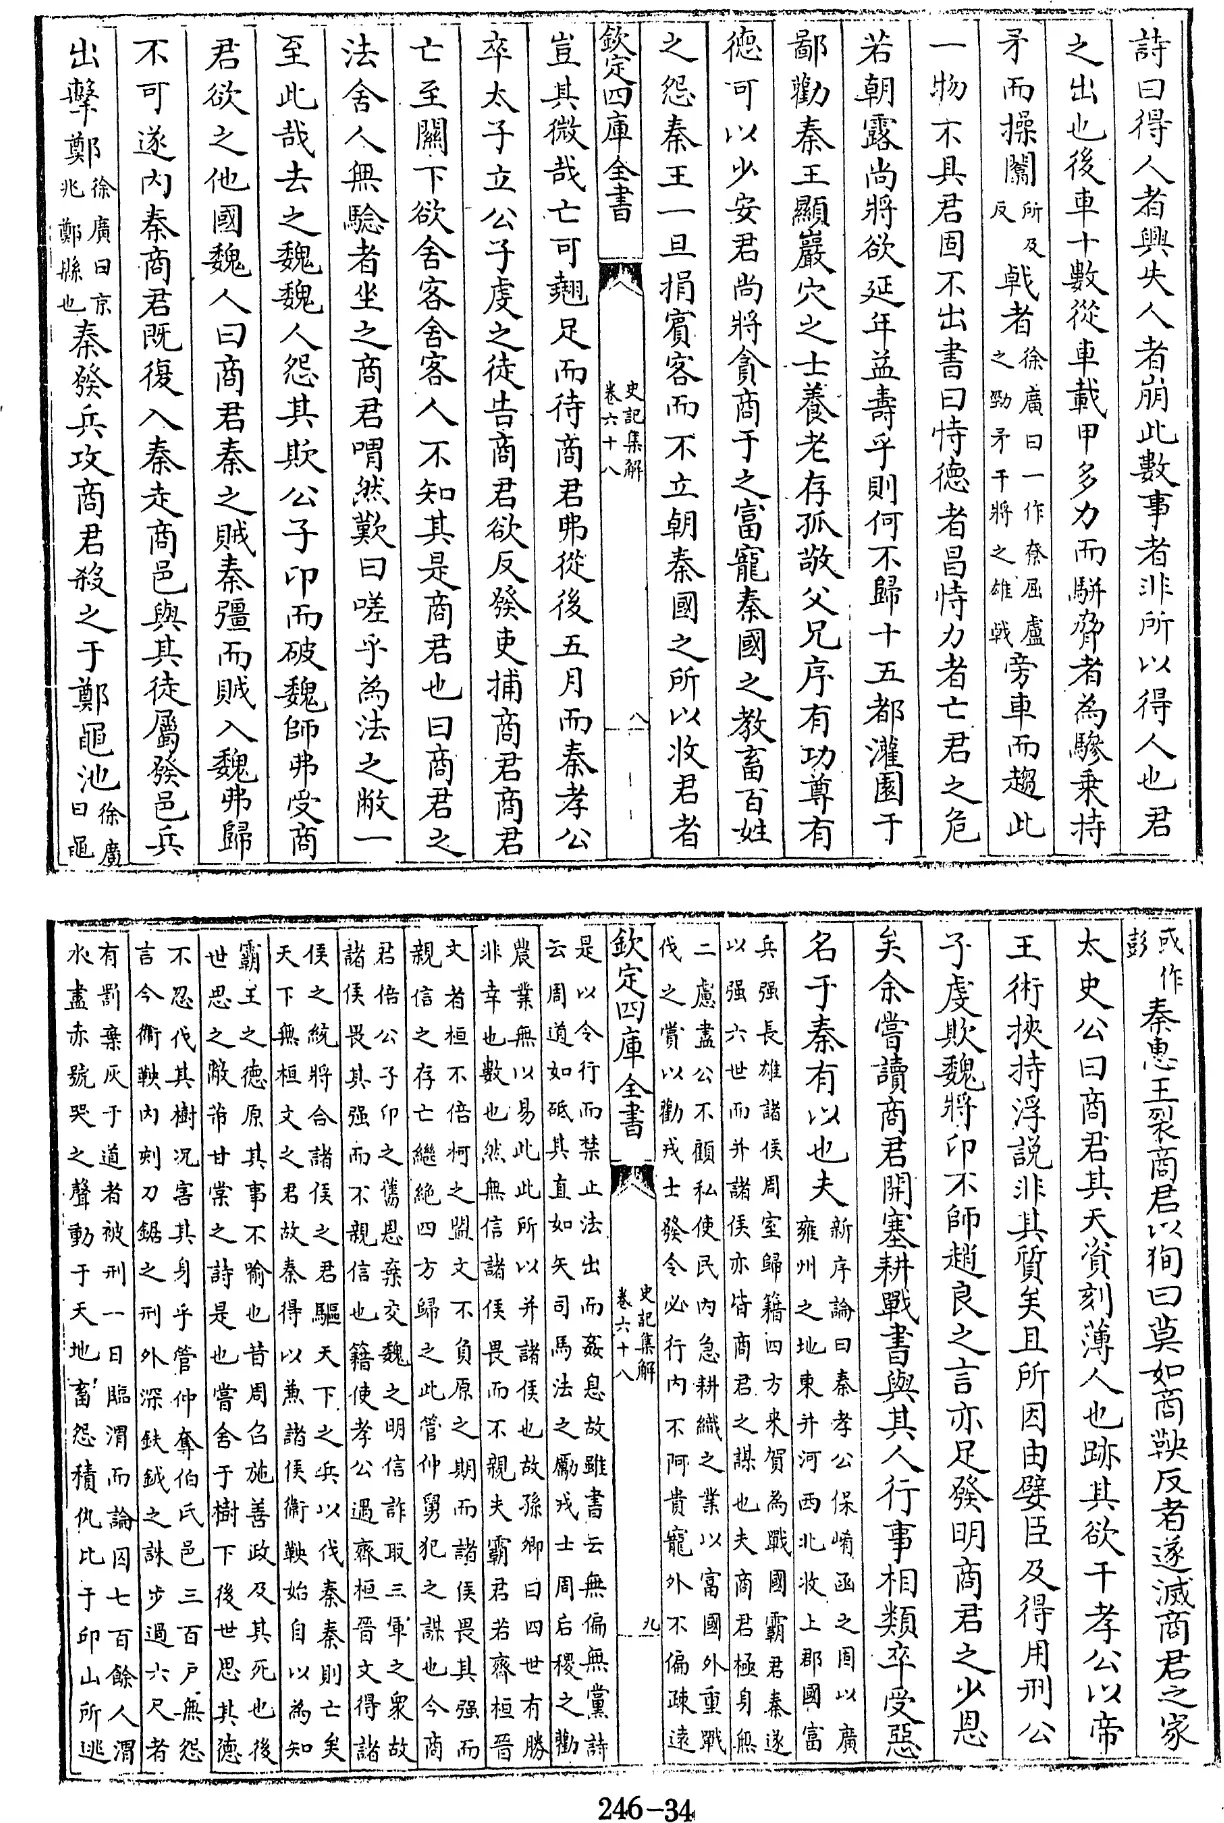 詩曰得人者興失人者崩此數事者非所以得人也君
之出也後車十數從車載甲多力而駢脅者為驂乗持
矛而操闟所及反戟者徐廣曰一作祭屈盧之勁矛干將之雄戟旁車而趨此
一物不具君固不出書曰恃德者昌恃力者亡君之危
若朝露尚將欲延年益壽乎則何不歸十五都灌園于
鄙勸秦王顯巖穴之士養老存孤敬父兄序有功尊有
德可以少安君尚將貪商于之富寵秦國之教畜百姓
之怨秦王一旦捐賓客而不立朝秦國之所以收君者
欽定四庫全書 史記集解卷六十八 八
豈其微哉亡可翹足而待商君弗從後五月而秦孝公
卒太子立公子虔之徒告商君欲反發吏捕商君商君
亡至關下欲舍客舍客人不知其是商君也曰商君之
法舍人無驗者坐之商君喟然歎曰嗟乎為法之敝一
至此哉去之魏魏人怨其欺公子卬而破魏師弗受商
君欲之他國魏人曰商君秦之賊秦彊而賊入魏弗歸
不可遂内秦商君既復入秦走商邑與其徒屬發邑兵
出擊鄭徐廣曰京兆鄭縣也秦發兵攻商君殺之于鄭黽池徐廣曰黽
或作彭秦惠王裂商君以狥曰莫如商鞅反者遂滅商君之家
太史公曰商君其天資刻薄人也跡其欲干孝公以帝
王術挾持浮說非其質矣且所因由嬖臣及得用刑公
子虔欺魏將卬不師趙良之言亦足發明商君之少恩
矣余嘗讀商君開塞耕戰書與其人行事相類卒受惡
名于秦有以也夫新序論曰秦孝公保崤函之固以廣雍州之地東并河西北收上郡國富
兵强長雄諸侯周室歸籍四方來賀為戰國霸君秦遂以强六世而并諸侯亦皆商君之謀也夫商君極身無
二慮盡公不顧私使民内急耕織之業以富國外重戰伐之賞以勸戎士發令必行内不阿貴寵外不偏疎遠
欽定四庫全書 史記集解卷六十八 九
是以令行而禁止法出而姦息故雖書云無偏無黨詩云周道如砥其直如矢司馬法之勵戎士周后稷之勸
農業無以易此此所以并諸侯也故孫卿曰四世有勝非幸也數也然無信諸侯畏而不親夫霸君若齊桓晉
文者桓不倍柯之盟文不負原之期而諸侯畏其强而親信之存亡繼絶四方歸之此管仲舅犯之謀也今商
君倍公子卬之舊恩棄交魏之明信詐取三軍之衆故諸侯畏其强而不親信也籍使孝公遇齊桓晉文得諸
侯之統將合諸侯之君驅天下之兵以伐秦秦則亡矣天下無桓文之君故秦得以兼諸侯衛鞅始自以為知
霸王之德原其事不喻也昔周召施善政及其死也後世思之蔽芾甘棠之詩是也嘗舍于樹下後世思其德
不忍伐其樹况害其身乎管仲奪伯氏邑三百戸無怨言今衛鞅内刻刀鋸之刑外深鈇鉞之誅步過六尺者
有罰棄灰于道者被刑一日臨渭而論囚七百餘人渭水盡赤號哭之聲動于天地畜怨積仇比于邱山所逃
246-34